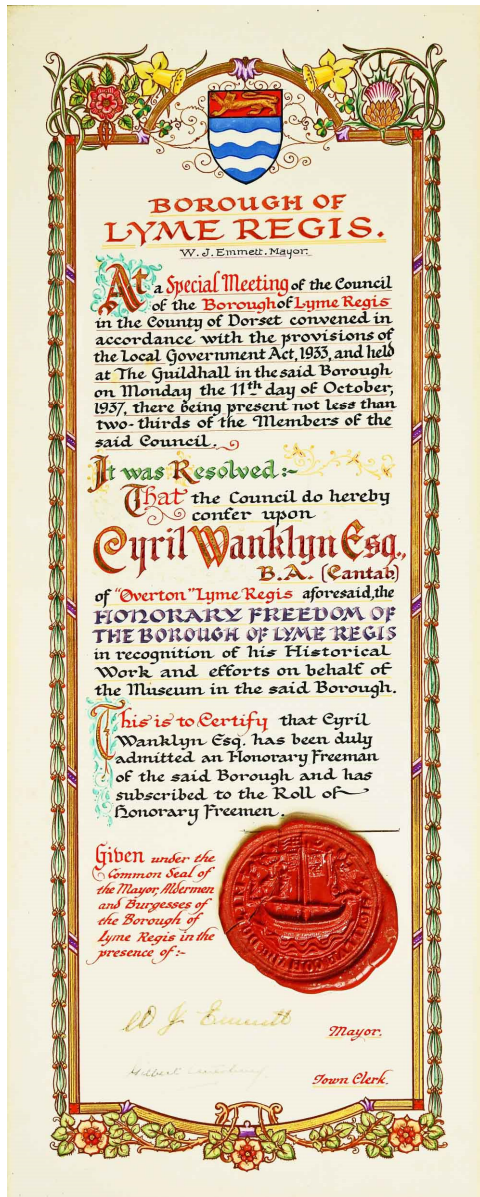 BOROUGH OF
LYME REGIS.
W. J. Emmett. Mayor.
At a Special Meeting of the Council
of the Borough of Lyme Regis
in the County of Dorset convened in
accordance with the provisions of
the Local Government Act, 1933, and held
at The Guildhall in the said Borough
on Monday the 11th day of October,
1937, there being present not less than
two-thirds of the Members of the
said Council.
It was Resolved:-
That the Council do hereby
confer upon
Cyril Wanklyn Esq.,
B.A. (Cantab)
of "Overton" Lyme Regis aforesaid, the
HONORARY FREEDOM OF
THE BOROUGH OF LYME REGIS
in recognition of his Historical
Work and efforts on behalf of
the Museum in the said Borough.
This is to Certify that Cyril
Wanklyn Esq. has been duly
admitted an Honorary Freeman
of the said Borough and has
subscribed to the Roll of
Honorary Freemen.
Given under the
Common Seal of
the Mayor, Aldermen
and Burgesses of
the Borough of
Lyme Regis in the
presence of:-
W J Emmett
Mayor.
Town Clerk.